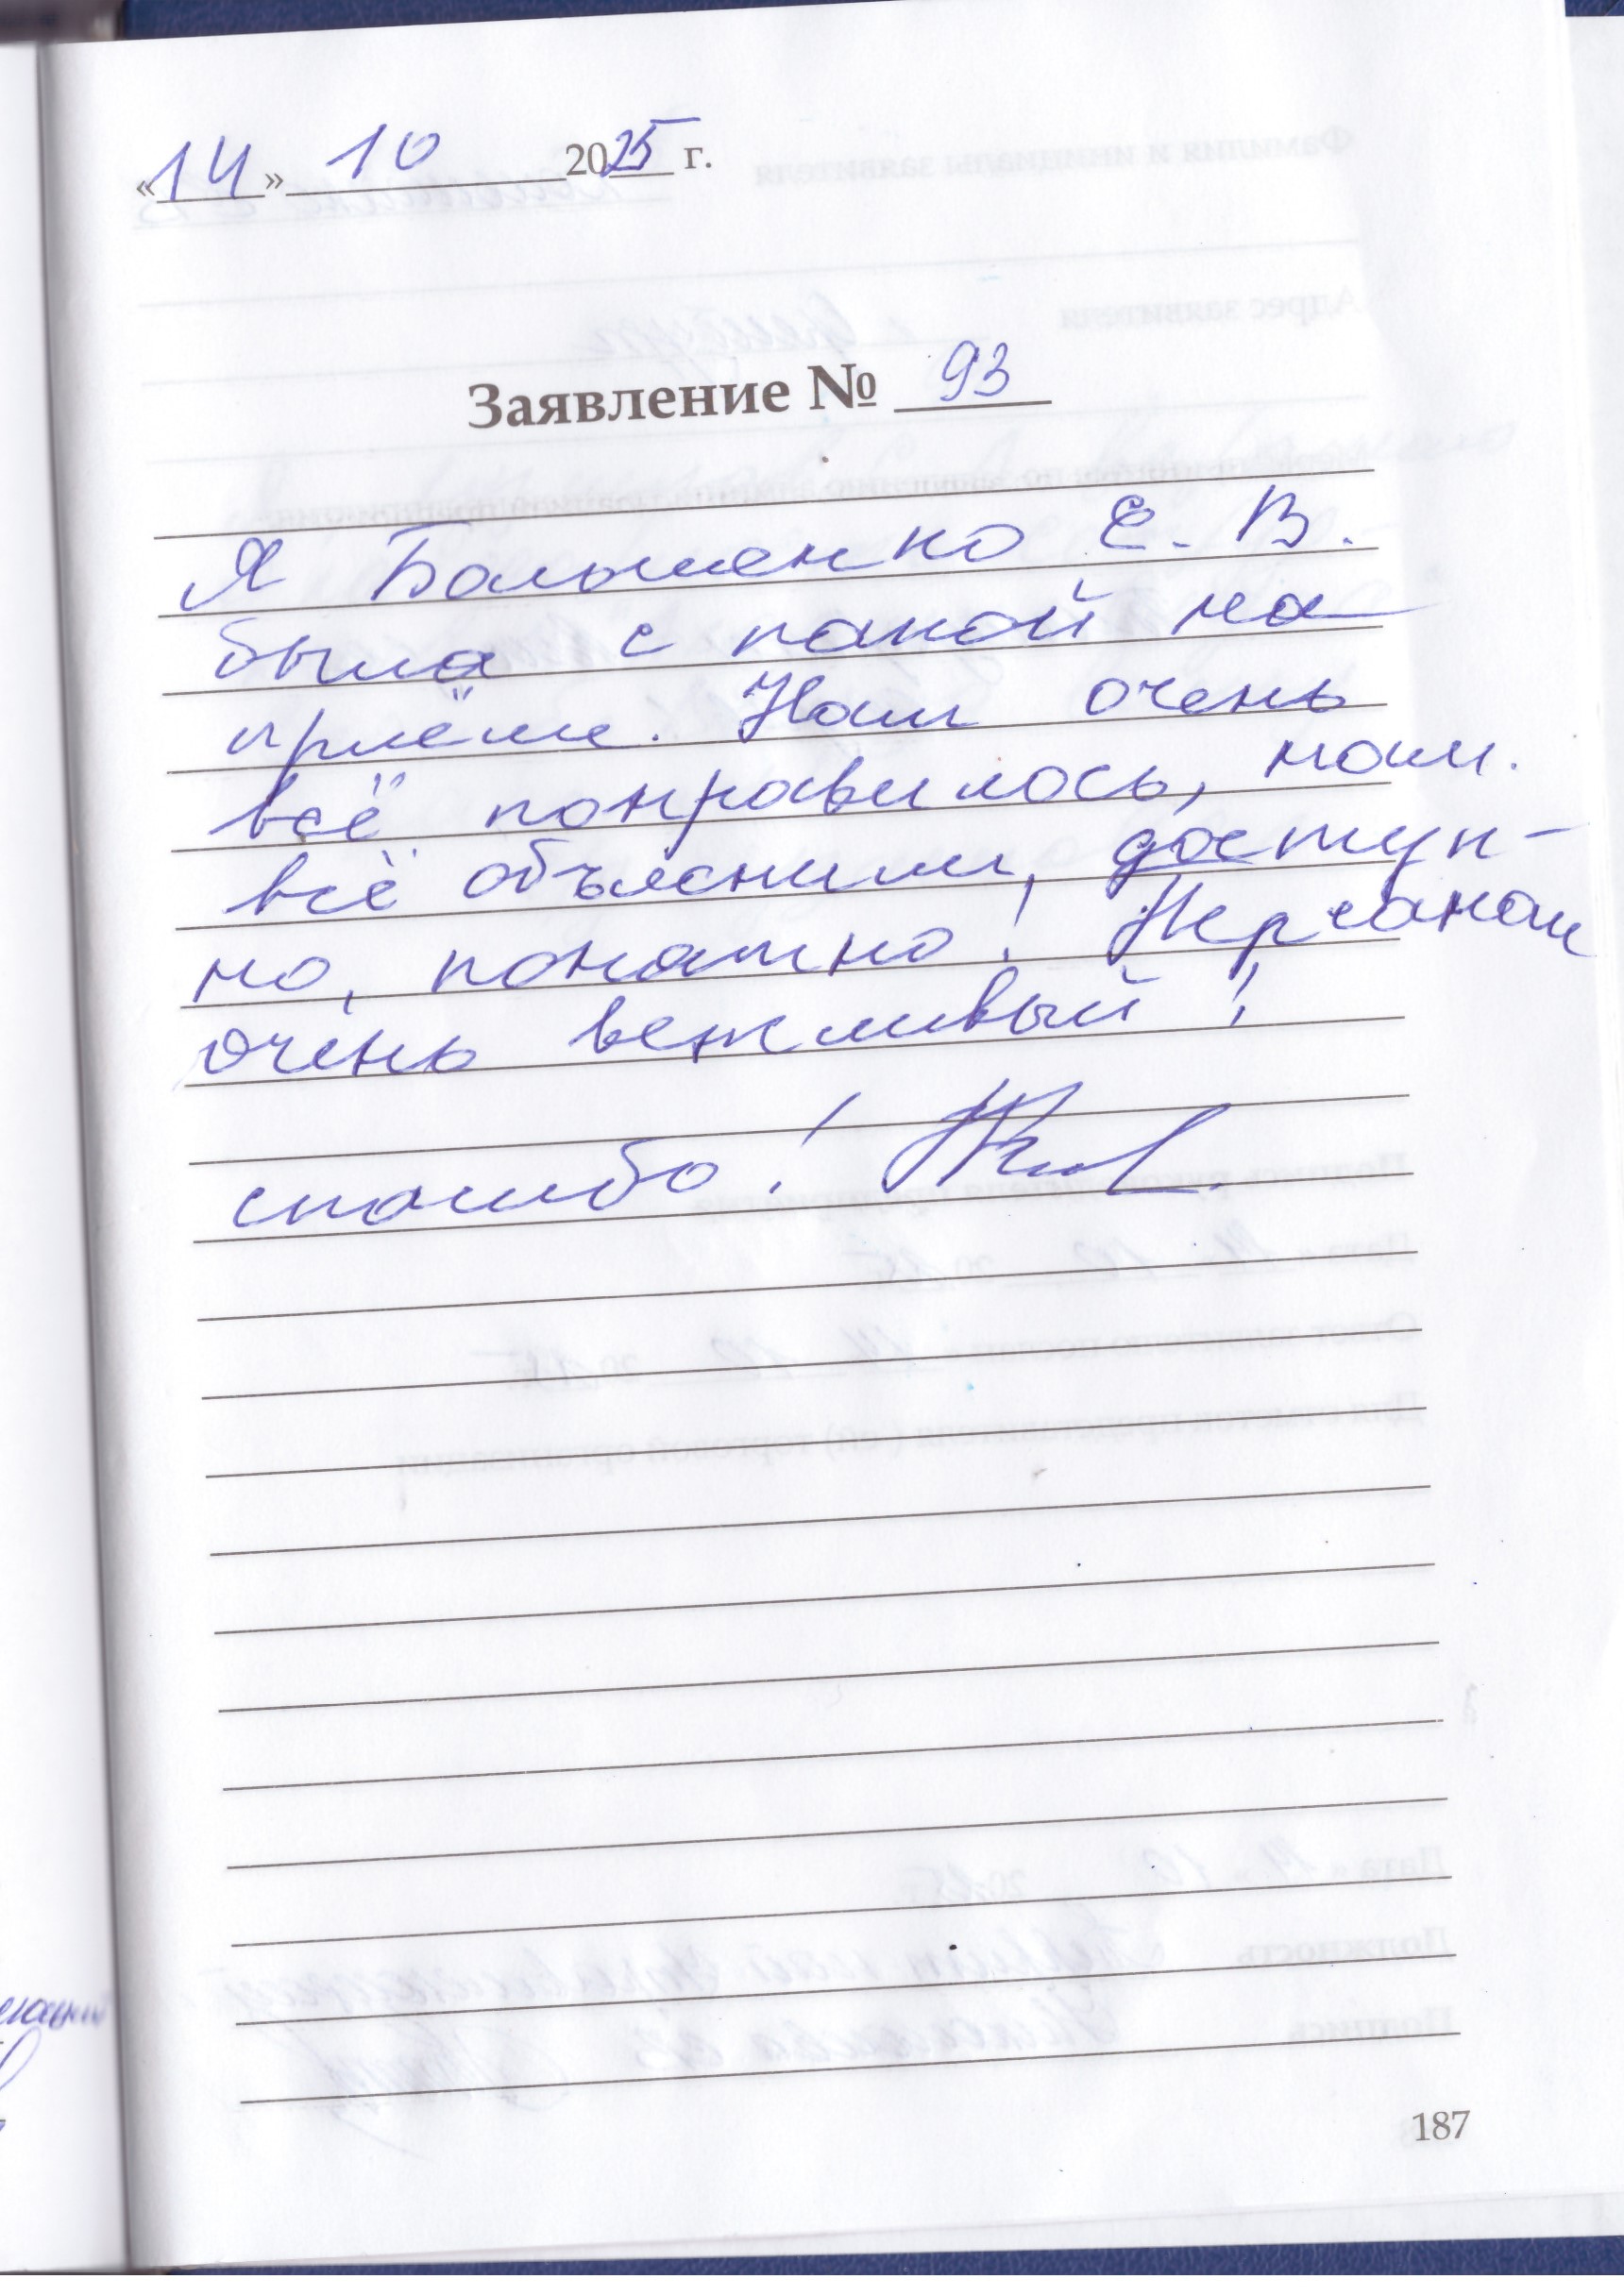 «14» 10 2025 г.
Заявление № 93
Я Большенко Е. В.
была с папой на
приёме. Нам очень
всё понравилось, нам
всё объяснили, доступ-
но, понятно! Персонал
очень вежливый!
спасибо!
187